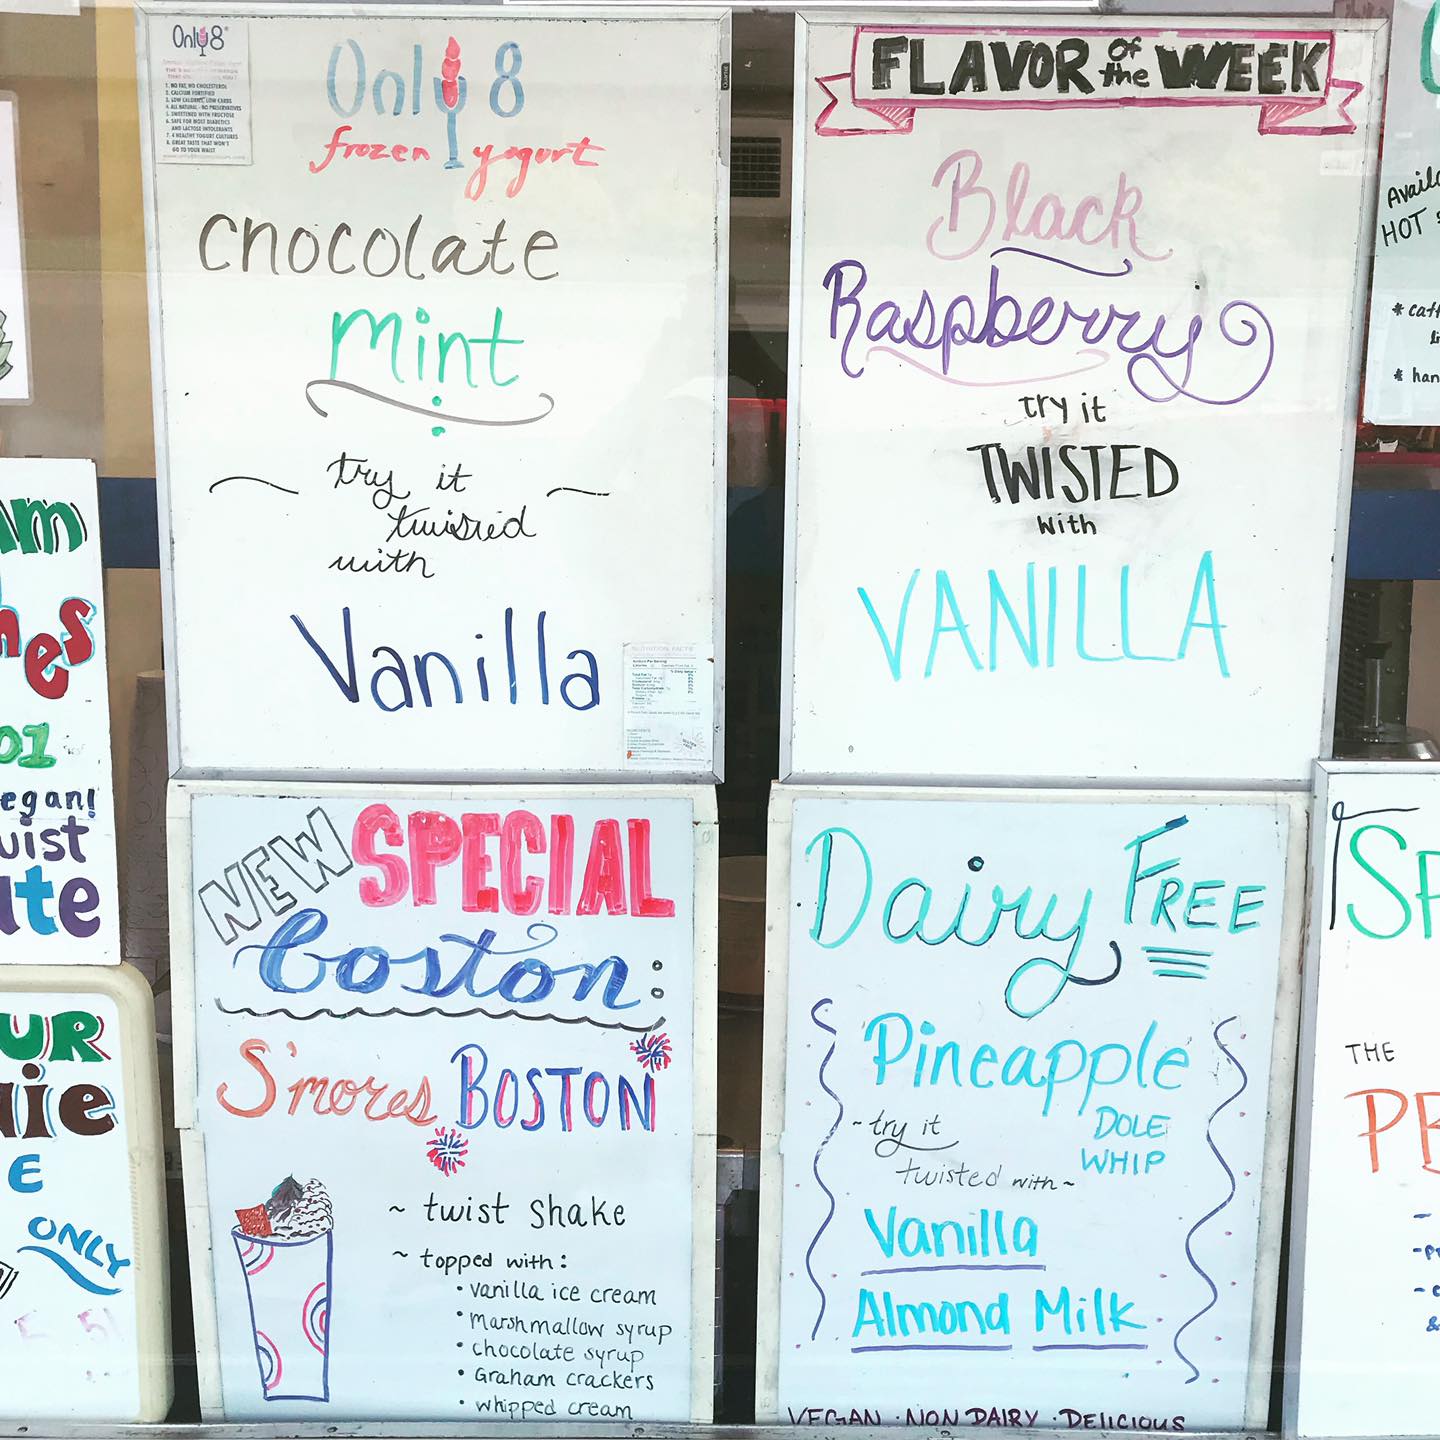 Only 8
1. NO FAT, NO CHOLESTEROL
2. CALCIUM FORTIFIED
3. LOW CALORIE, LOW CARBS
4. ALL NATURAL - NO PRESERVATIVES
5. SWEETENED WITH FRUCTOSE
6. SAFE FOR MOST DIABETICS
AND LACTOSE INTOLERANTS
7. 4 HEALTHY YOGURT CULTURES
8. GREAT TASTE THAT WON'T
GO TO YOUR WAIST
Only 8
frozen yogurt
Chocolate
Mint
try it
twisted
with
Vanilla
NUTRITION FACTS
FLAVOR of the WEEK
Black
Raspberry
try it
TWISTED
with
VANILLA
NEW SPECIAL
boston:
S'mores BOSTON
~ twist shake
~ topped with:
• vanilla ice cream
• marshmallow syrup
• chocolate syrup
• Graham crackers
• whipped cream
Dairy FREE
Pineapple
DOLE
WHIP
~try it
twisted with~
Vanilla
Almond Milk
VEGAN · NON DAIRY · DELICIOUS
HOT
* han
THE
ONLY